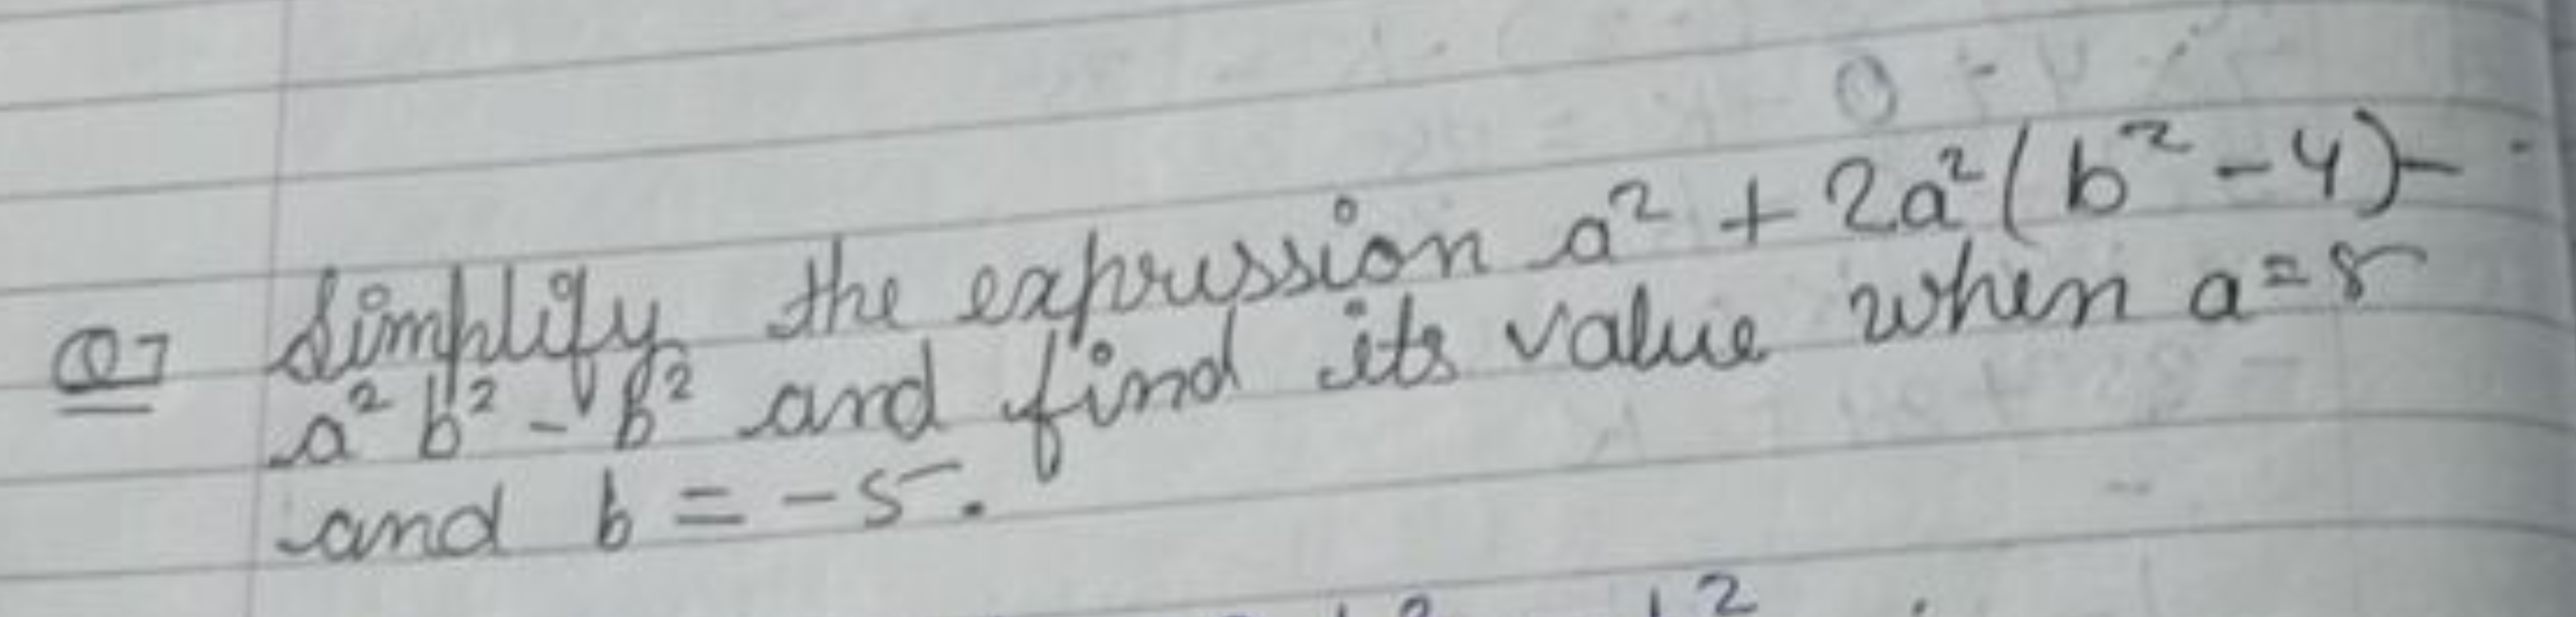 Q7 Simplify the expression a² + 2a² (b² - 4) -
a² b² - b² and find its value when a = 5
and b = -5.